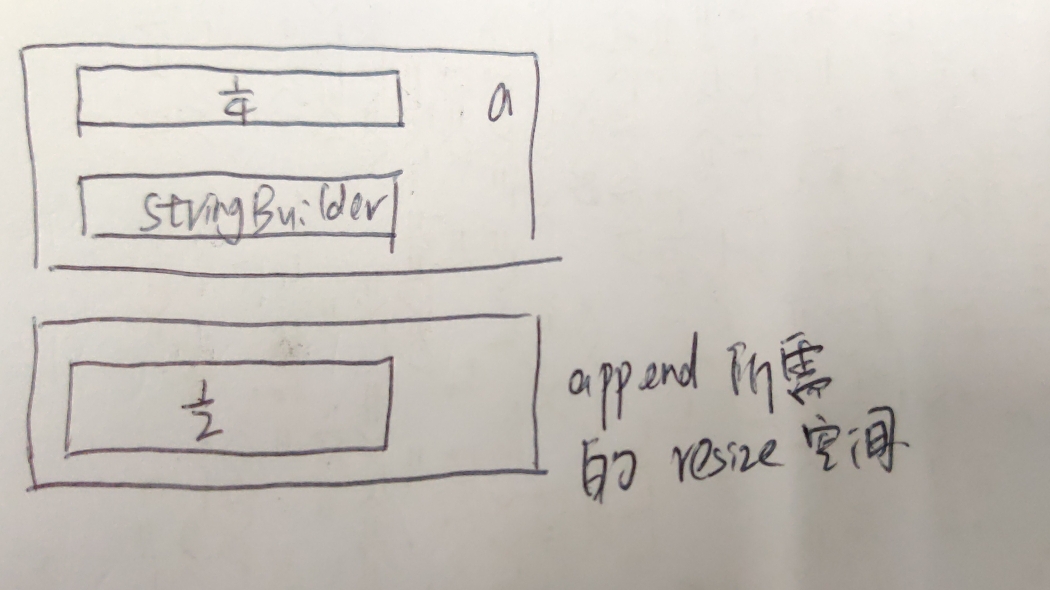 1/4
a
StringBuilder
1/2
append 所需
的 resize 空间